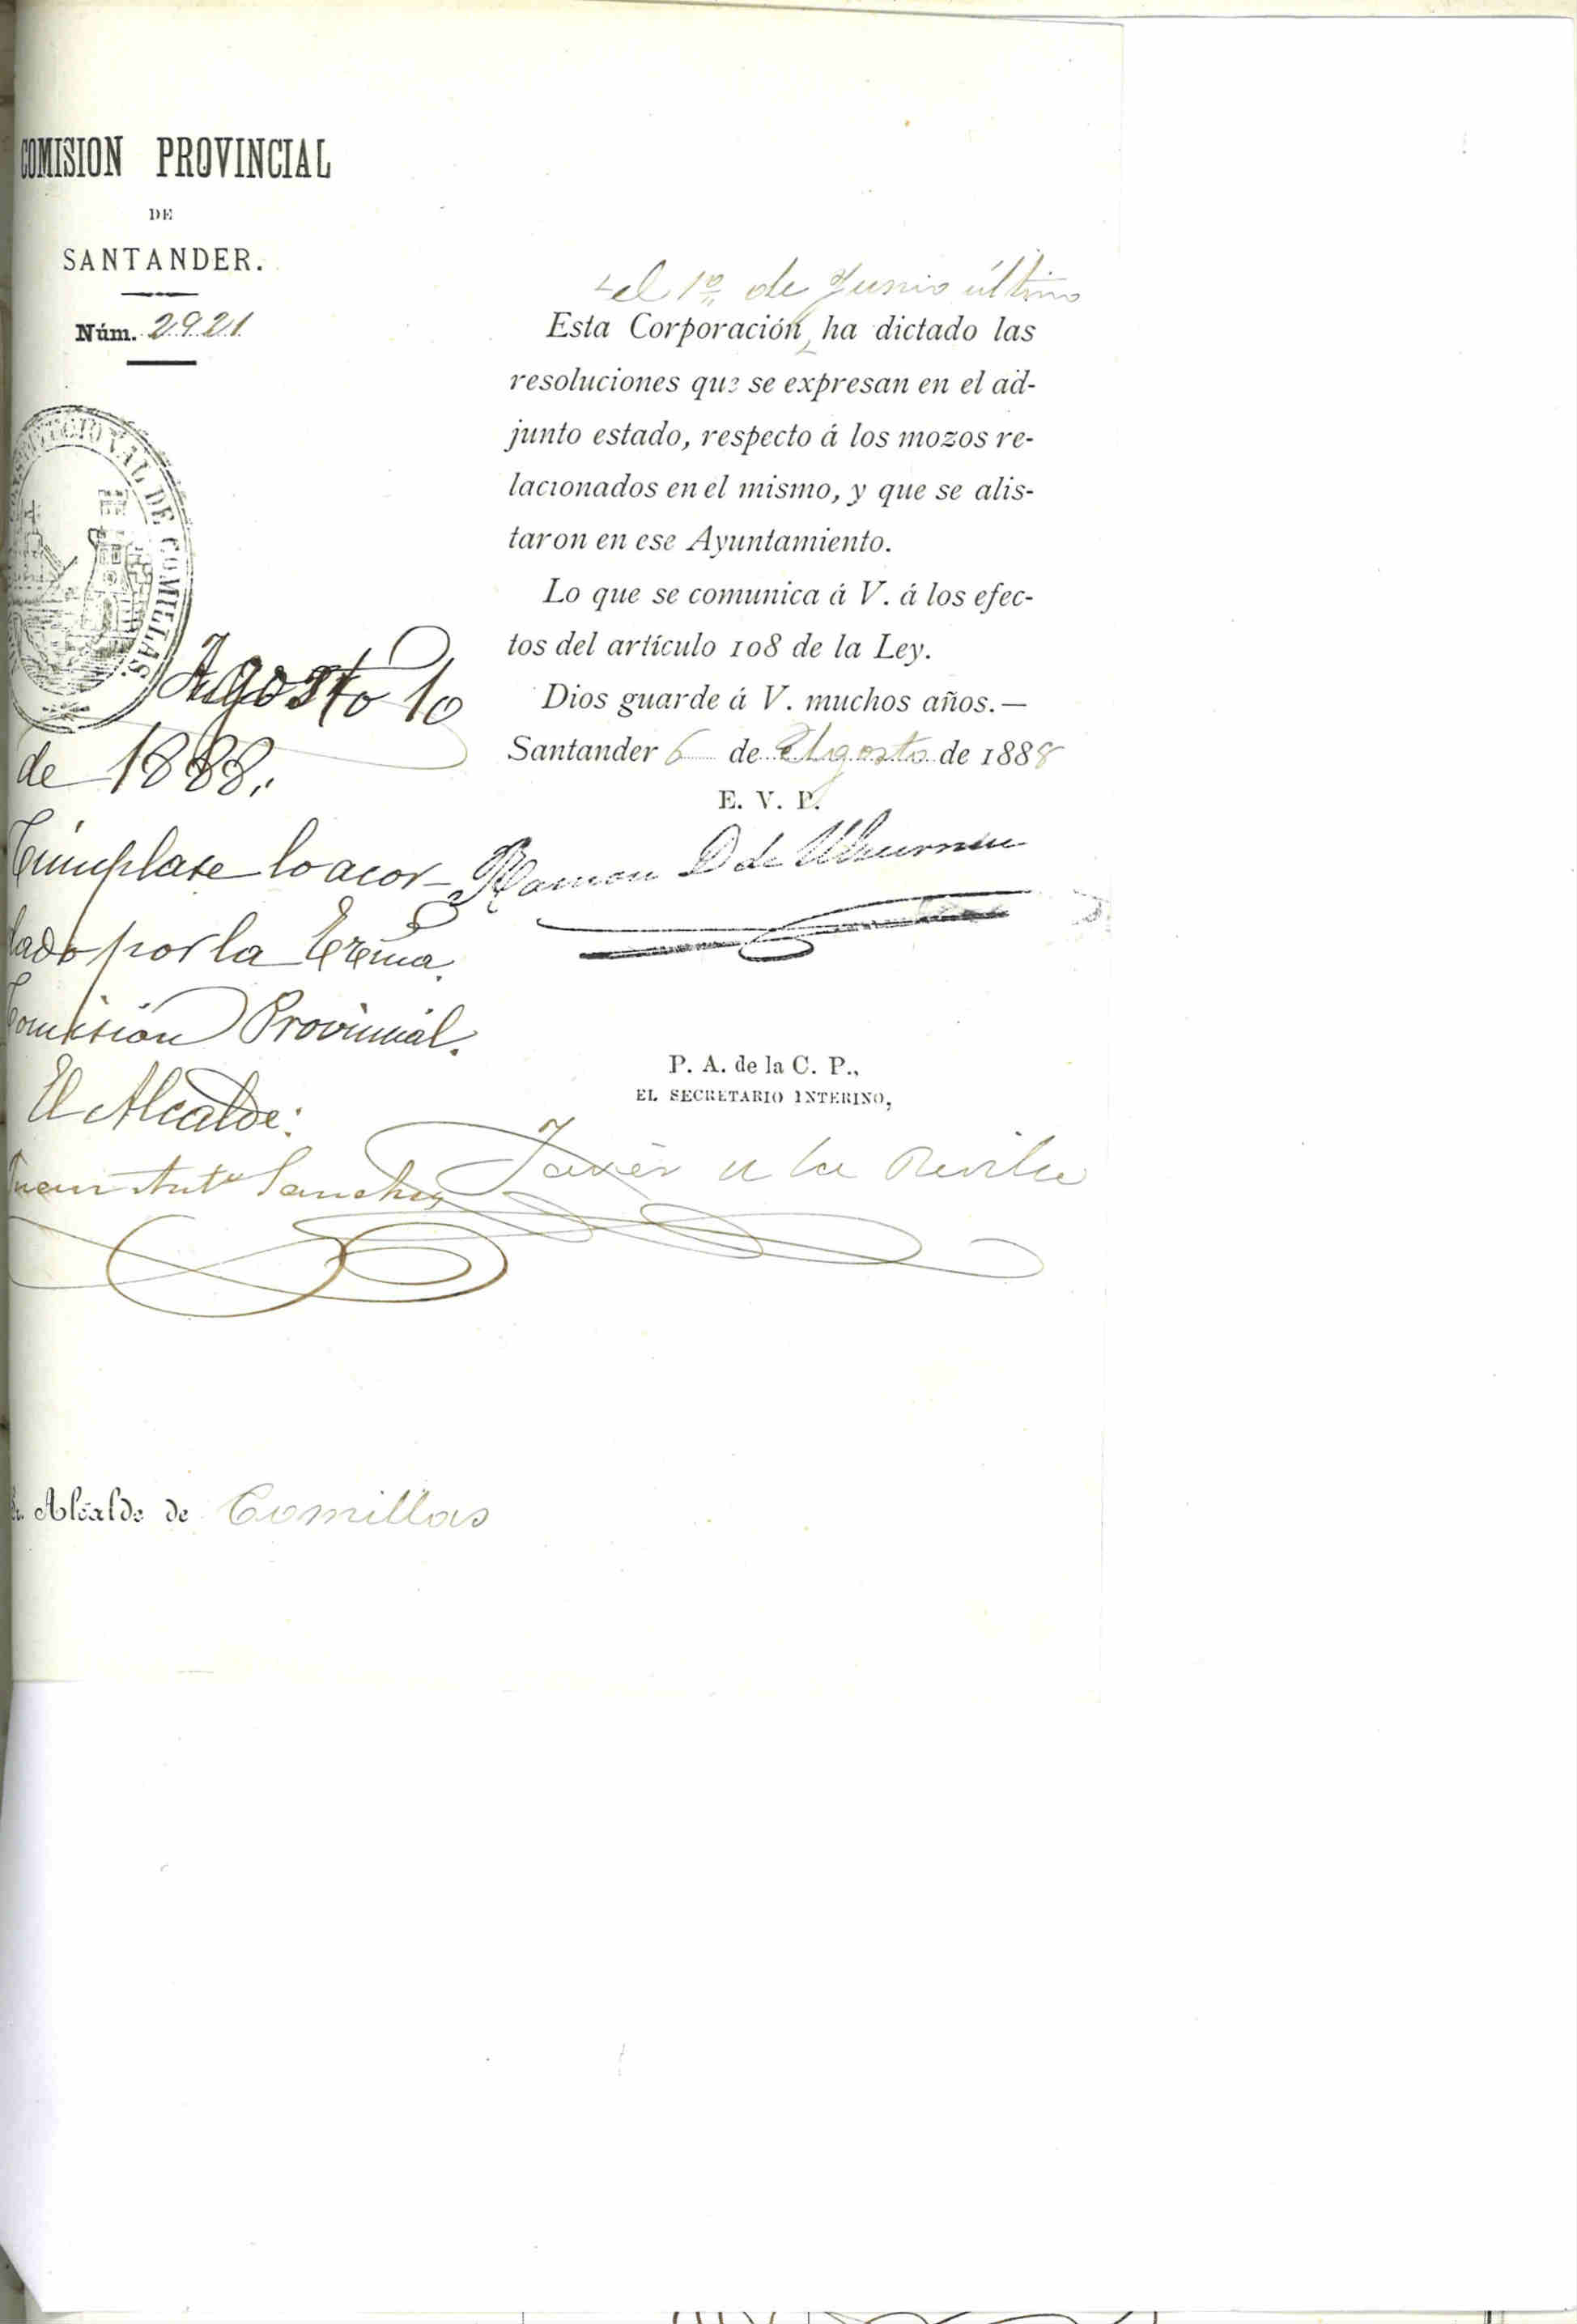 COMISION PROVINCIAL
DE
SANTANDER.
Núm. 2921
CONSTITUCIONAL DE COMILLAS.
Agosto 10
de 1888.
Cumplase lo acor-
dado por la Exma.
Comisión Provincial.
El Alcalde:
Juan Anto Sanchez
el 1º de Junio último
Esta Corporación, ha dictado las
resoluciones que se expresan en el ad-
junto estado, respecto á los mozos re-
lacionados en el mismo, y que se alis-
taron en ese Ayuntamiento.
Lo que se comunica á V. á los efec-
tos del artículo 108 de la Ley.
Dios guarde á V. muchos años.—
Santander 6 de Agosto de 1888
E. V. P.
Ramon D de
P. A. de la C. P.,
EL SECRETARIO INTERINO,
Javier de la Revilla
Sr. Alcalde de Comillas